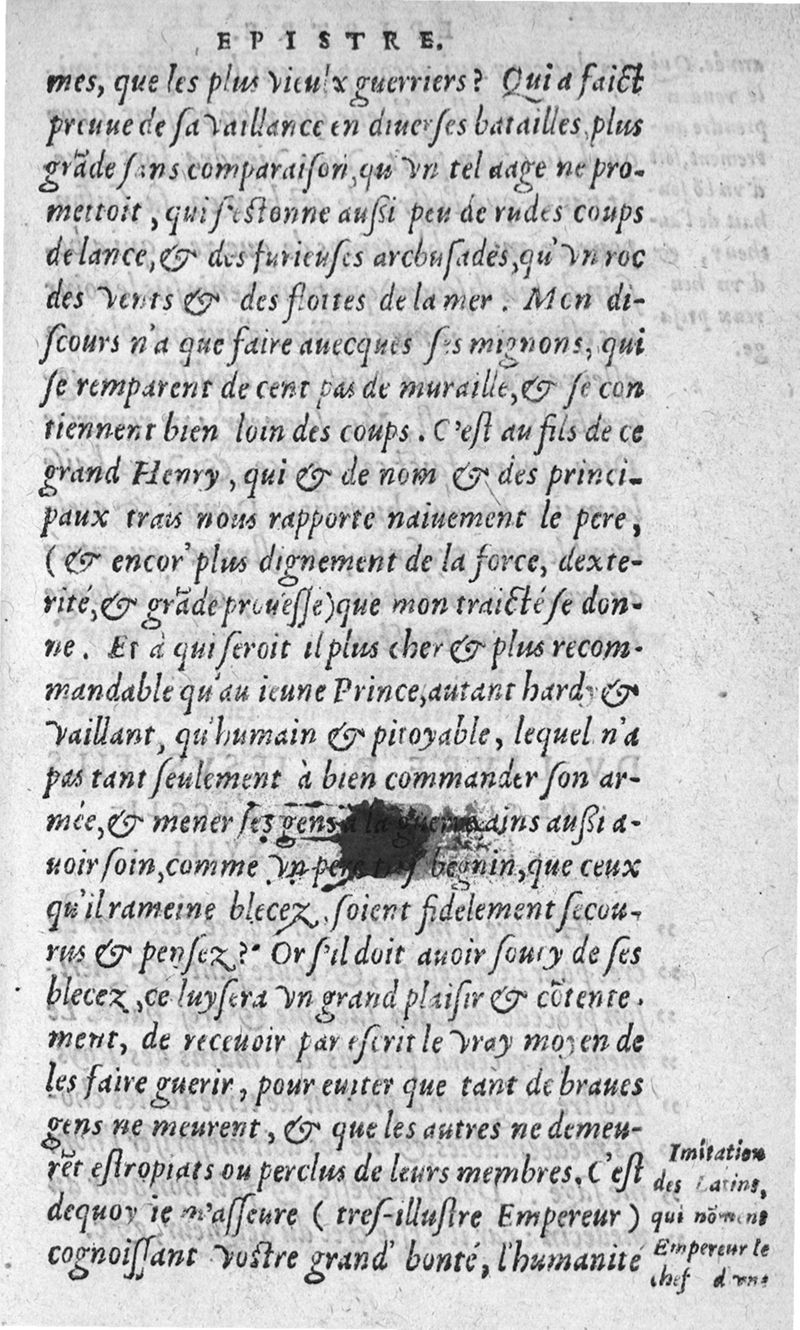 EPISTRE.
mes, que les plus vieulx guerriers? Qui a faict
preuue de sa vaillance en diuerses batailles, plus
grãde sans comparaison, qu'vn tel aage ne pro-
mettoit, qui s'estonne aussi peu de rudes coups
de lance, & des furieuses arcbusades, qu'vn roc
des vents & des flottes de la mer. Mon di-
scours n'a que faire auecques ses mignons, qui
se remparent de cent pas de muraille, & se con
tiennent bien loin des coups. C'est au fils de ce
grand Henry, qui & de nom & des princi-
paux trais nous rapporte naiuement le pere,
(& encor' plus dignement de la force, dexte-
rité, & grãde prouesse) que mon traicté se don-
ne. Et à qui seroit il plus cher & plus recom-
mandable qu'au ieune Prince, autant hardy &
vaillant, qu'humain & pitoyable, lequel n'a
pas tant seulement à bien commander son ar-
mée, & mener ses gens à la guerre, ains aussi a-
uoir soin, comme vn pere tres begnin, que ceux
qu'il rameine blecez, soient fidelement secou-
rus & pensez? Or s'il doit auoir soucy de ses
blecez, ce luy sera vn grand plaisir & cõtente-
ment, de receuoir par escrit le vray moyen de
les faire guerir, pour euiter que tant de braues
gens ne meurent, & que les autres ne demeu-
rẽt estropiats ou perclus de leurs membres. C'est
dequoy ie m'asseure (tres-illustre Empereur)
cognoissant vostre grand' bonté, l'humanité
Imitation
des Latins,
qui nõment
Empereur le
chef d'vne